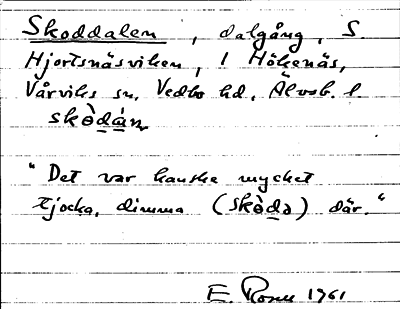 Skoddalen, dalgång, S.
Hjortsnäsviken, i Hökenäs,
Vårviks sn, Vedbo hd, Älvsb. l.
skò̱dá̱n
"Det var kanske mycket
tjocka, dimma (skò̱də) där."
E. 1961